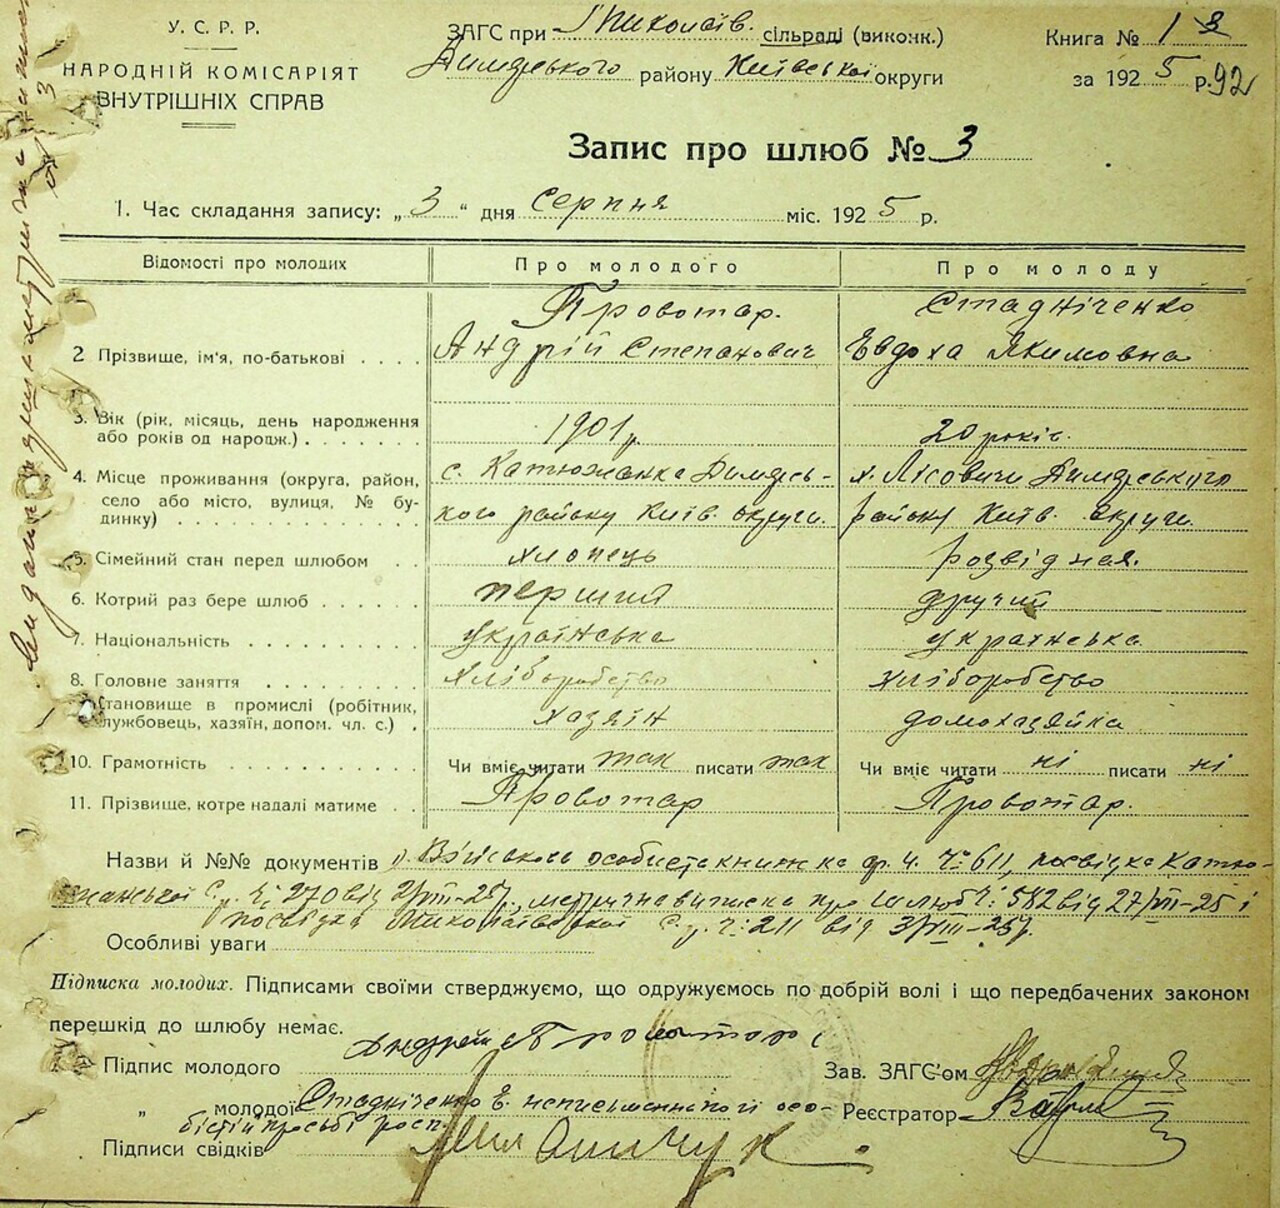 У. С. Р. Р.
НАРОДНІЙ КОМІСАРІЯТ
ВНУТРІШНІХ СПРАВ
ЗАГС при Миколаїв. сільраді (виконк.)
Димерського району Київської округи
Книга № 1
за 1925 р. 92
Запис про шлюб № 3
1. Час складання запису: „3“ дня Серпня міс. 1925 р.
Відомості про молодих Про молодого Про молоду
Провотар. Стадніченко
2 Прізвище, ім'я, по-батькові . . . . Андрій Степанович Евдоха Якимовна
3. Вік (рік, місяць, день народження
або років од народж.) . . . . . . . 1901 р. 20 років.
4. Місце проживання (округа, район, с. Катюжанка Димерсь- х. Лісовичи Димерського
село або місто, вулиця, № бу-
динку) . . . . . . . . . . . . кого району Київ. округи. району Київ. округи.
5. Сімейний стан перед шлюбом . . хлопець розвідная.
6. Котрий раз бере шлюб . . . . . . перший другий
7. Національність . . . . . . . . . . українська українська
8. Головне заняття . . . . . . . . хліборобство хліборобство
Становище в промислі (робітник,
службовець, хазяїн, допом. чл. с.) . хазяїн домохазяйка
10. Грамотність . . . . . . . . . . Чи вміє читати так писати так Чи вміє читати ні писати ні
11. Прізвище, котре надалі матиме . . Провотар Провотар.
Назви й №№ документів 1) Військова особиста книжка ф. ч. Ч: 611, посвідка Катю-
жанської С. Ч: 270 від 2/VIII-25 р., метрична виписка про шлюб Ч: 582 від 27/VII-25 і
посвідка Миколаївської С. р. Ч: 211 від 3/VIII-25 р.
Особливі уваги
Підписка молодих. Підписами своїми стверджуємо, що одружуємось по добрій волі і що передбачених законом
перешкід до шлюбу немає.
Підпис молодого Андрей Провотар
Зав. ЗАГС'ом
„ молодої Стадніченко Е. неписьменна по її осо-
бістій просьбі росп.
Реєстратор
Підписи свідків